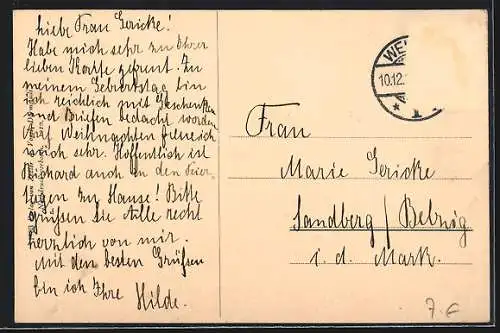 Liebe Frau Gericke!
Habe mich sehr zu Ihrer
lieben Karte gefreut. Zu
meinem Geburtstag bin
ich reichlich mit Geschenken
und Briefen bedacht worden
Auf Weihnachten freue ich
mich sehr. Hoffentlich ist
Richard auch in den Feier-
tagen zu Hause! Bitte
grüssen Sie Alle recht
herzlich von mir.
Mit den besten Grüßen
bin ich Ihre Hilde.
WE
10.12.
1
Frau
Marie Gericke
Sandberg / Belzig
i. d. Mark.
7.€